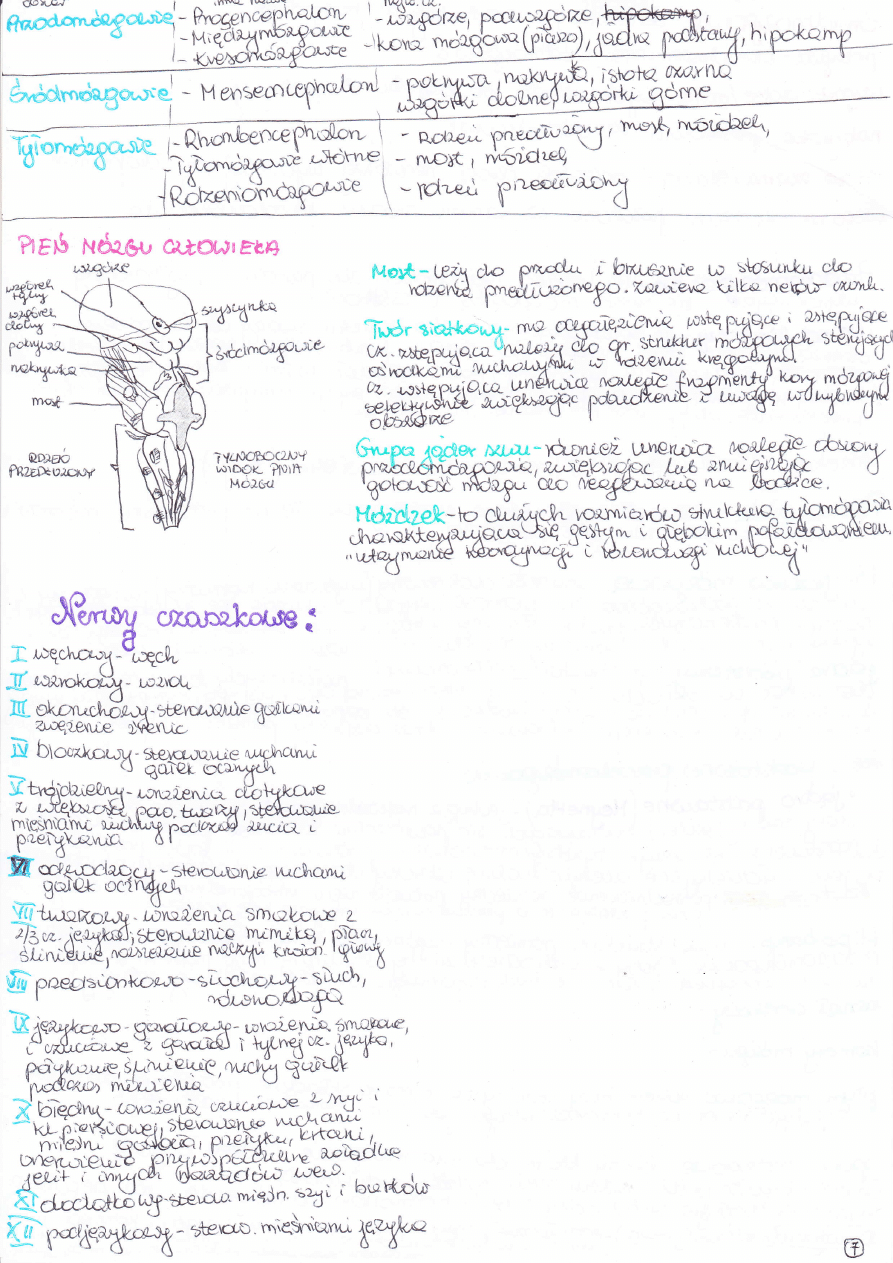 Przodomózgowie - Procencephalon - wzgórze, podwzgórze, hipokamp,
- Międzymózgowie - kora mózgowa (płaszcz), jądra podstawy, hipokamp
- Kresomózgowie
Śródmózgowie - Mensencephalon - pokrywa, nakrywka, istota czarna
wzgórki dolne, wzgórki górne
Tyłomózgowie - Rhombencephalon - Rdzeń przedłużony, most, móżdżek,
- Tyłomózgowie wtórne - most, móżdżek,
- Rdzeniomózgowie - rdzeń przedłużony
PIEŃ MÓZGU CZŁOWIEKA
wzgórze
wzgórek
górny
wzgórek
dolny
pokrywa
nakrywka
most
szyszynka
śródmózgowie
RDZEŃ
PRZEDŁUŻONY
TYLNOBOCZNY
WIDOK PNIA
MÓZGU
Most - leży do przodu i brzusznie w stosunku do
rdzenia przedłużonego. Zawiera kilka nerwów czaszk.
Twór siatkowy - ma odgałęzienia wstępujące i zstępujące
cz. zstępująca należy do gr. struktur mózgowych sterujących
ośrodkami ruchowymi w rdzeniu kręgowym.
cz. wstępująca unerwia rozległe fragmenty kory mózgowej
selektywnie zwiększając pobudzenie i uwagę w wybranym
obszarze
Grupa jąder szwu - również unerwia rozległe obszary
przodomózgowia, zwiększając lub zmniejszając
gotowość mózgu do reagowania na bodźce.
Móżdżek - to dużych rozmiarów struktura tyłomózgowia
charakteryzująca się gęstym i głębokim pofałdowaniem.
"utrzymanie koordynacji i równowagi ruchowej"
Nerwy czaszkowe:
I węchowy - węch
II wzrokowy - wzrok
III okoruchowy - sterowanie gałkami
zwężenie źrenic
IV bloczkowy - sterowanie ruchami
gałek ocznych
V trójdzielny - wrażenia dotykowe
z większości pow. twarzy, sterowanie
mięśniami żuchwy podczas żucia i
przełykania
VI odwodzący - sterowanie ruchami
gałek ocznych
VII twarzowy - wrażenia smakowe z
2/3 cz. języka, sterowanie mimiką, płacz,
ślinienie, rozszerzanie naczyń krwion. głowy
VIII przedsionkowo-słuchowy - słuch,
równowaga
IX językowo-gardłowy - wrażenia smakowe,
i czuciowe z gardła i tylnej cz. języka,
połykanie, ślinienie, ruchy gałek
podczas mówienia
X błędny - wrażenia czuciowe z szyi i
kl. piersiowej, sterowanie ruchami
mięśni gardła, przełyku, krtani,
unerwienie przywspółczulne żołądka
jelit i innych narządów wew.
XI dodatkowy - sterow mięśn. szyi i barków
XII podjęzykowy - sterow. mięśniami języka
7